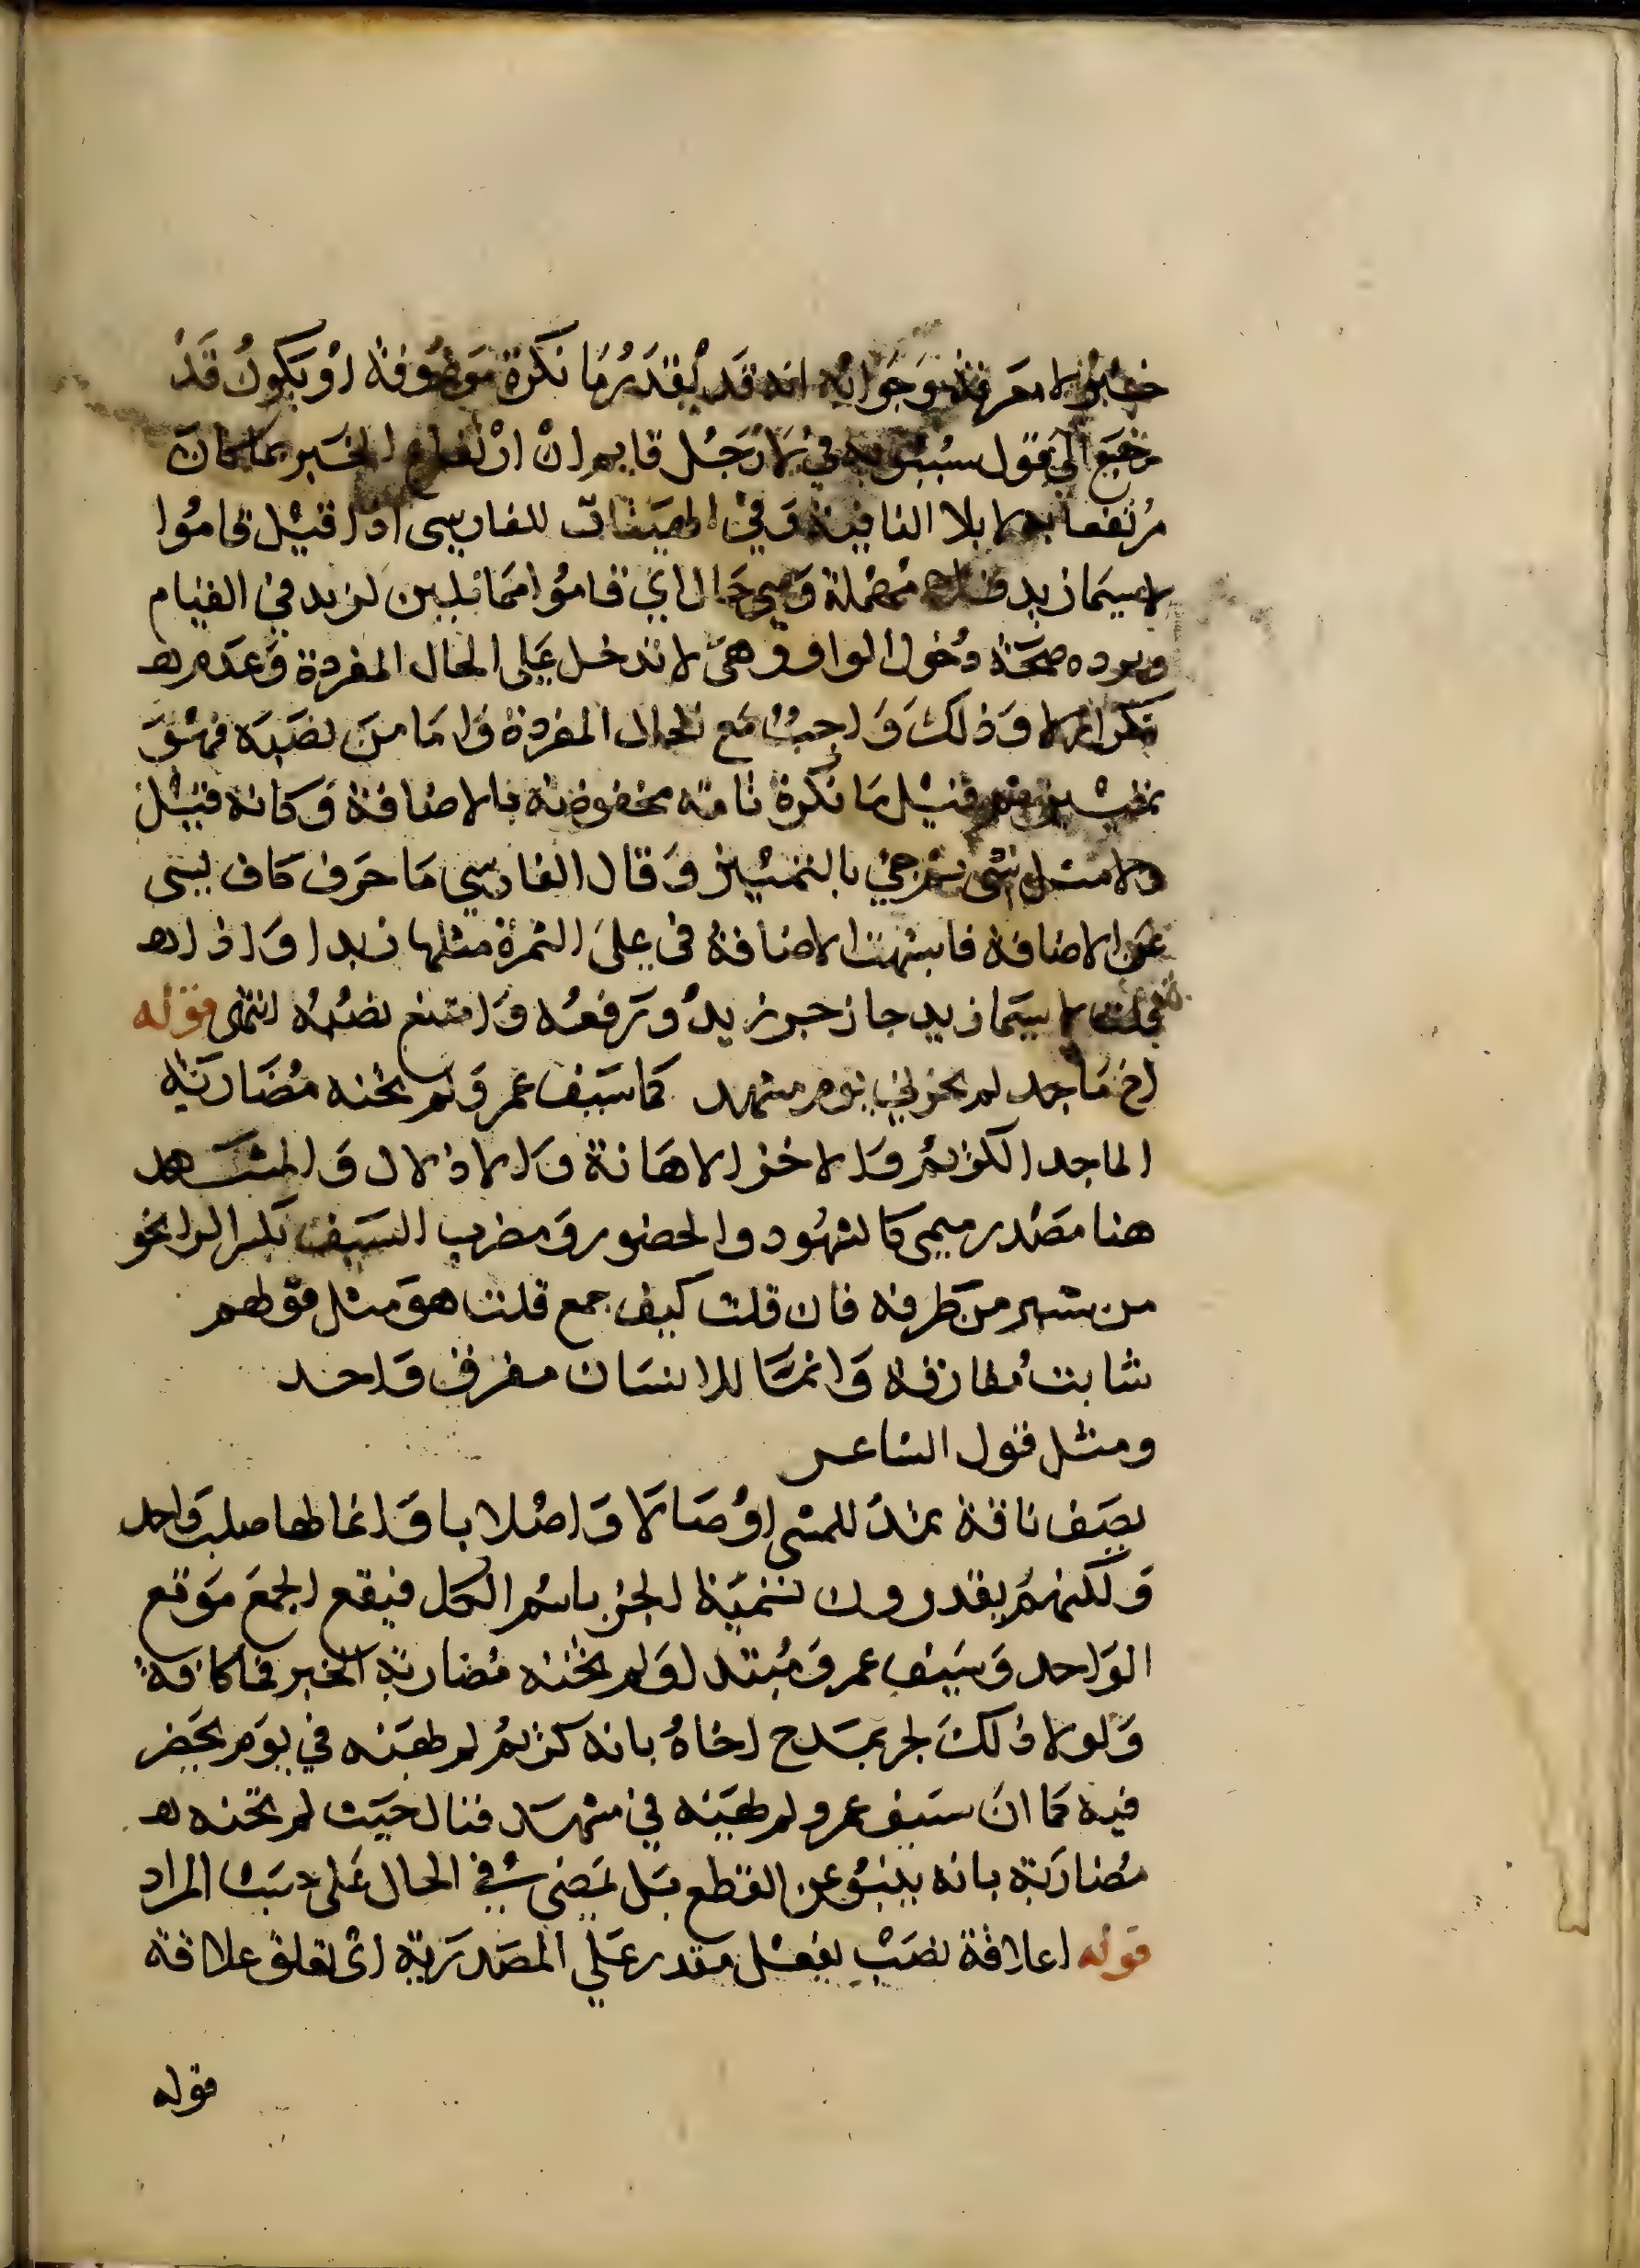 خبر لا معرفة وجوابه انه قد يقدر ما نكرة موصوفة او يكون قد
رجع الى قول سيبويه في لا رجل قايم ان ارتفاع الخبر بما كان
مرتفعا به لا بلا النافية وفي الهيتيات للفارسي اذا قيل قاموا
لاسيما زيد فلا مهملة وسي حال اي قاموا مماثلين لزيد في القيام
ويرده صحة دخول الواو وهي لا تدخل على الحال المفردة وعدم
تكرار لا وذلك واجب مع الحال المفردة واما من نصبه فهو
تمييز ثم قيل ما نكرة تامة مخفوضة بالاضافة وكانه قيل
ولا مثل شي ثم جي بالتمييز وقال الفارسي ما حرف كاف لسي
عن الاضافة فاشبهت الاضافة في على الثمرة مثلها زبدا واذا
قلت لاسيما زيد جاز جر زيد ورفعه وامتنع نصبه انتهى قوله
اخ ماجد لم يخزني يوم مشهد كما سيف عمرو لم تخنه مضاربه
الماجد الكريم والاخزا الاهانة والاذلال والمشهد
هنا مصدر ميمي كالشهود والحضور ومضرب السيف بكسر الرا نحو
من شبر من طرفه فان قلت كيف جمع قلت هو مثل قولهم
شابت مفارقه وانما للانسان مفرق واحد
ومثل قول الشاعر
يصف ناقة تمد للمشي اوصالا واصلابا وانما لها صلب واحد
ولكنهم يقدرون تسمية الجز باسم الكل فيقع الجمع موقع
الواحد وسيف عمرو مبتدا ولم تخنه مضاربه الخبر فما كافة
ولولا ذلك لجر يمدح اخاه بانه كريم لم يهنه في يوم يحضر
فيه كما ان سيف عمرو لم يهنه في مشهد فنال حيث لم تخنه
مضاربه بانه ينبو عن القطع بل يمضي في الحال على حسب المراد
قوله اعلاقة نصب بفعل مقدر على المصدرية اى تعلق علاقة
قوله